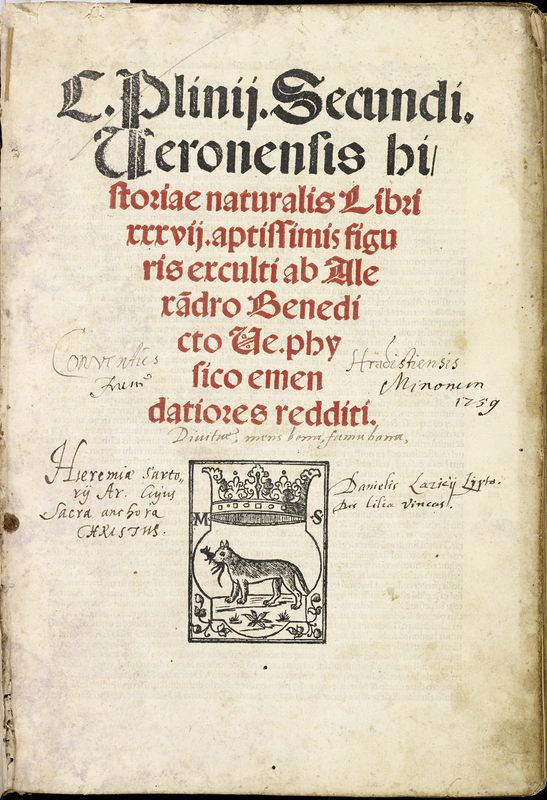 C. Plinij. Secundi.
Ueronensis hi/
storiae naturalis Libri
xxxvij. aptissimis figu
ris exculti ab Ale
xãdro Benedi
cto Ue. phy
sico emen
datiores redditi.
Conventûs Hradistiensis
Minorum
1759
Divitiae, mens bona, fama bona,
Hieremiæ Sarto,,
rij Ar. Cujus
Sacra anchora
CHRISTUS.
Danielis
Per lilia vincas.
M S